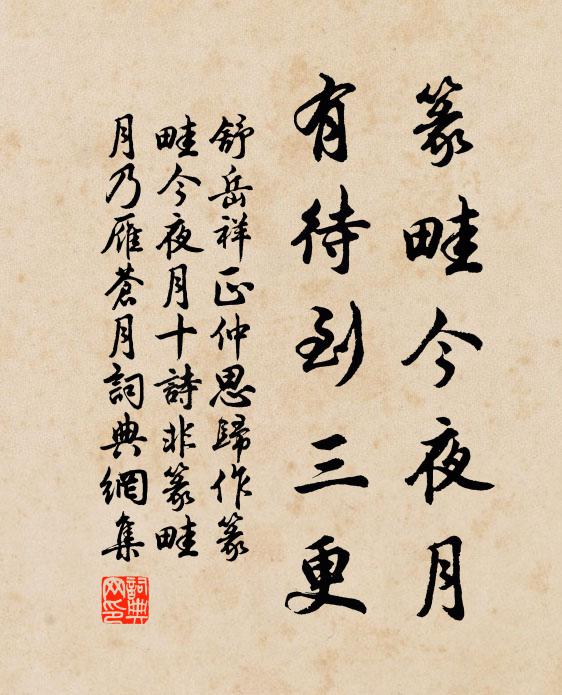 篆畦今夜月
有待到三更
舒岳祥正仲思歸作篆
畦今夜月十詩非篆畦
月乃雁蒼月詞典網集
詞典網印